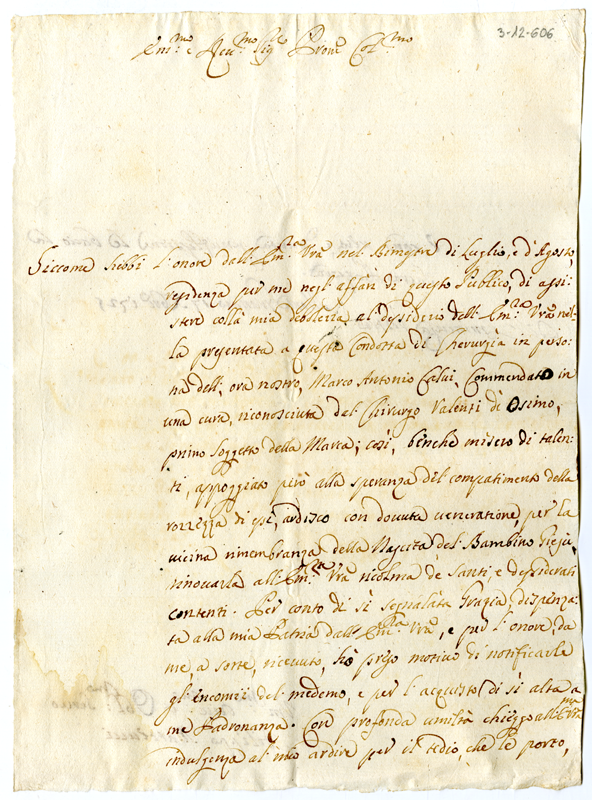 3-12-606
Em.mo e Rev.mo Sig.e Prone Col.mo
Siccome hebbi l'onore dall'Em.za Vra nel Bimestre di Luglio, e d'Agosto,
residenza per me negl'affari di questo Publico, di assi-
stere colla mia debolezza al dessiderio dell'Em.za Vra nel-
la presentata a questa Condotta di Chirurgia in perso-
na dell'ora nostro, Marco Antonio Calvi, Commendato in
una cura, riconosciuta dal Chirurgo Valenti di Osimo,
primo soggetto della Marca; così, benche misero di talen-
ti, appoggiato però alla speranza del compatimento della
rozzezza di essi, ardisco con dovuta veneratione, per la
vicina rimembranza della Nascita del Bambino Giesù,
rinovarla all'Em.za Vra ricolma de santi, e dessiderati
contenti. Per conto di sì segnalata Grazia dispenza-
ta alla mia Patria dall'Em.za Vra, e per l'onore, da
me, a sorte, ricevuto, hò preso motivo di notificarle
gl'encomii del medemo, e per l'acquisto di sì alta a
me Padronanza. Con profonda umiltà chieggo all'Em.za Vra
indulgenza al mio ardire per il tedio, che le porto,